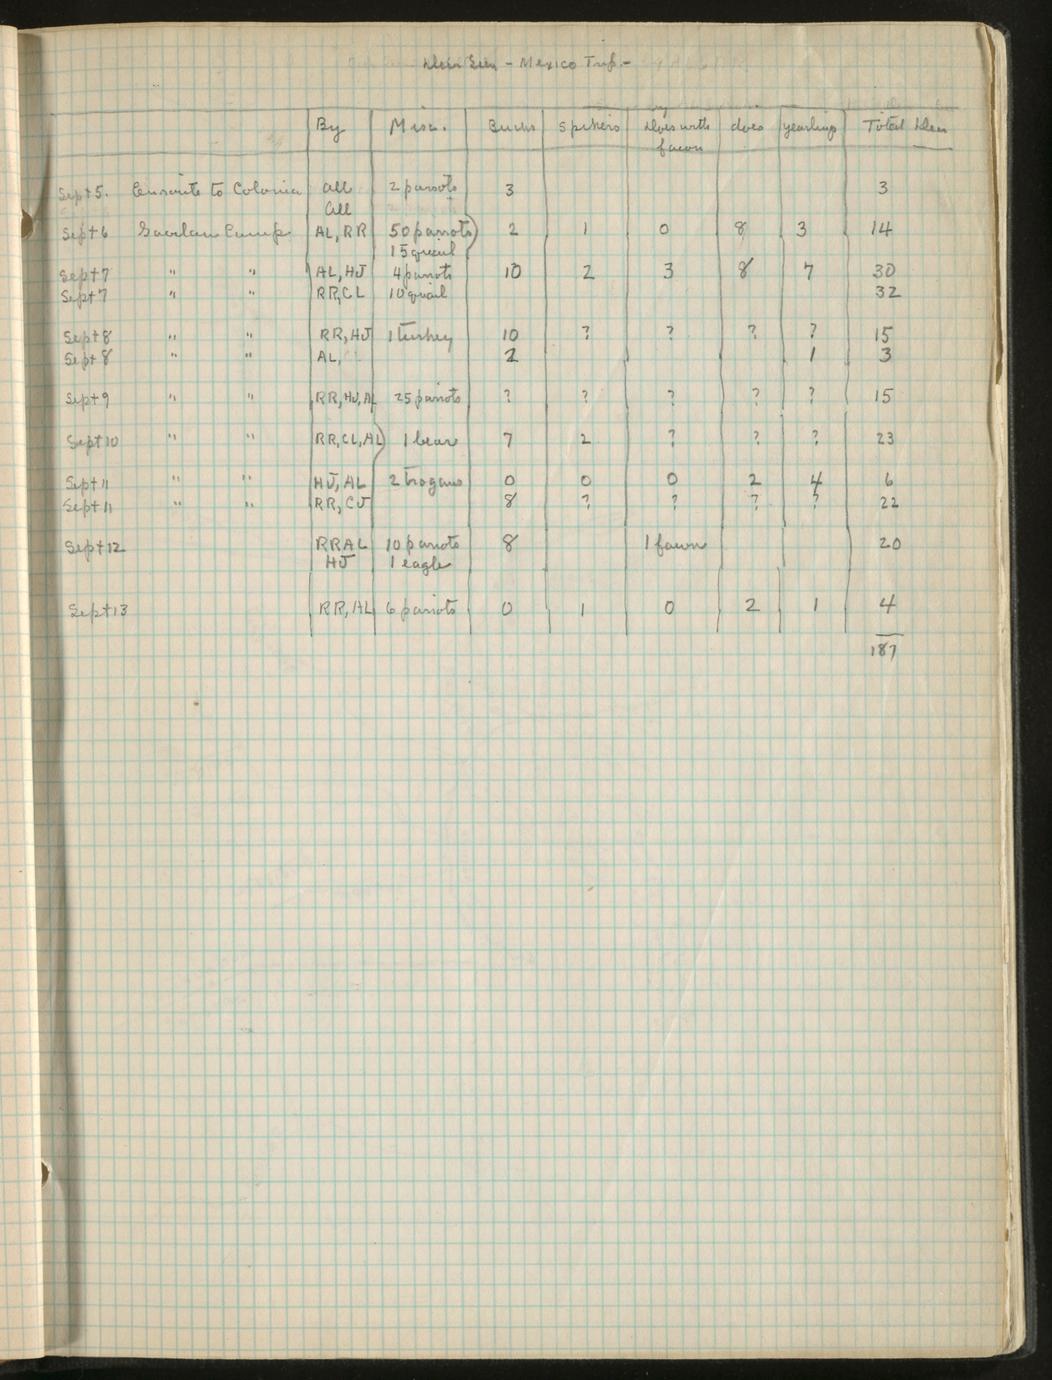 Deer Seen - Mexico Trip -
By Misc. Bucks Spikers Does with fawn does yearlings Total Deer
Sept 5. Enroute to Colonia all 2 parrots 3 3
all
Sept 6 Gavilan Camp AL, RR 50 parrots 2 1 0 8 3 14
15 quail
Sept 7 " " AL, HJ 4 parrots 10 2 3 8 7 30
Sept 7 " " RR, CL 10 quail 32
Sept 8 " " RR, HJ 1 turkey 10 ? ? ? ? 15
Sept 8 " " AL, 2 1 3
Sept 9 " " RR, HJ, AL 25 parrots ? ? ? ? ? 15
Sept 10 " " RR, CL, AL 1 bear 7 2 ? ? ? 23
Sept 11 " " HJ, AL 2 trogans 0 0 0 2 4 6
Sept 11 " " RR, CJ 8 ? ? ? ? 22
Sept 12 RR AL 10 parrots 8 1 fawn 20
HJ 1 eagle
Sept 13 RR, AL 6 parrots 0 1 0 2 1 4
187